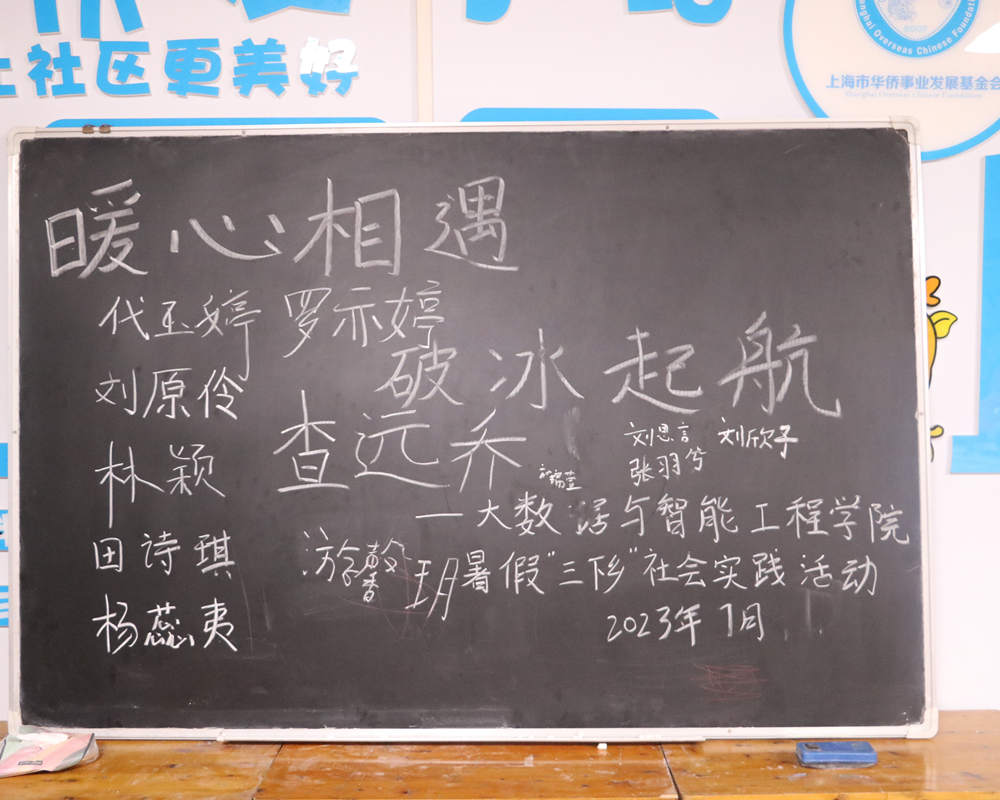 社区更美好
Shanghai Overseas Chinese Foundation
上海市华侨事业发展基金会
暖心相遇
代玉婷 罗示婷
破冰起航
刘原伶
查远乔
刘思言 刘欣子
张羽兮
林颖
一大数 活与智能工程学院
田诗琪
暑假“三下乡”社会实践活动
杨蕊夷
2023年7月